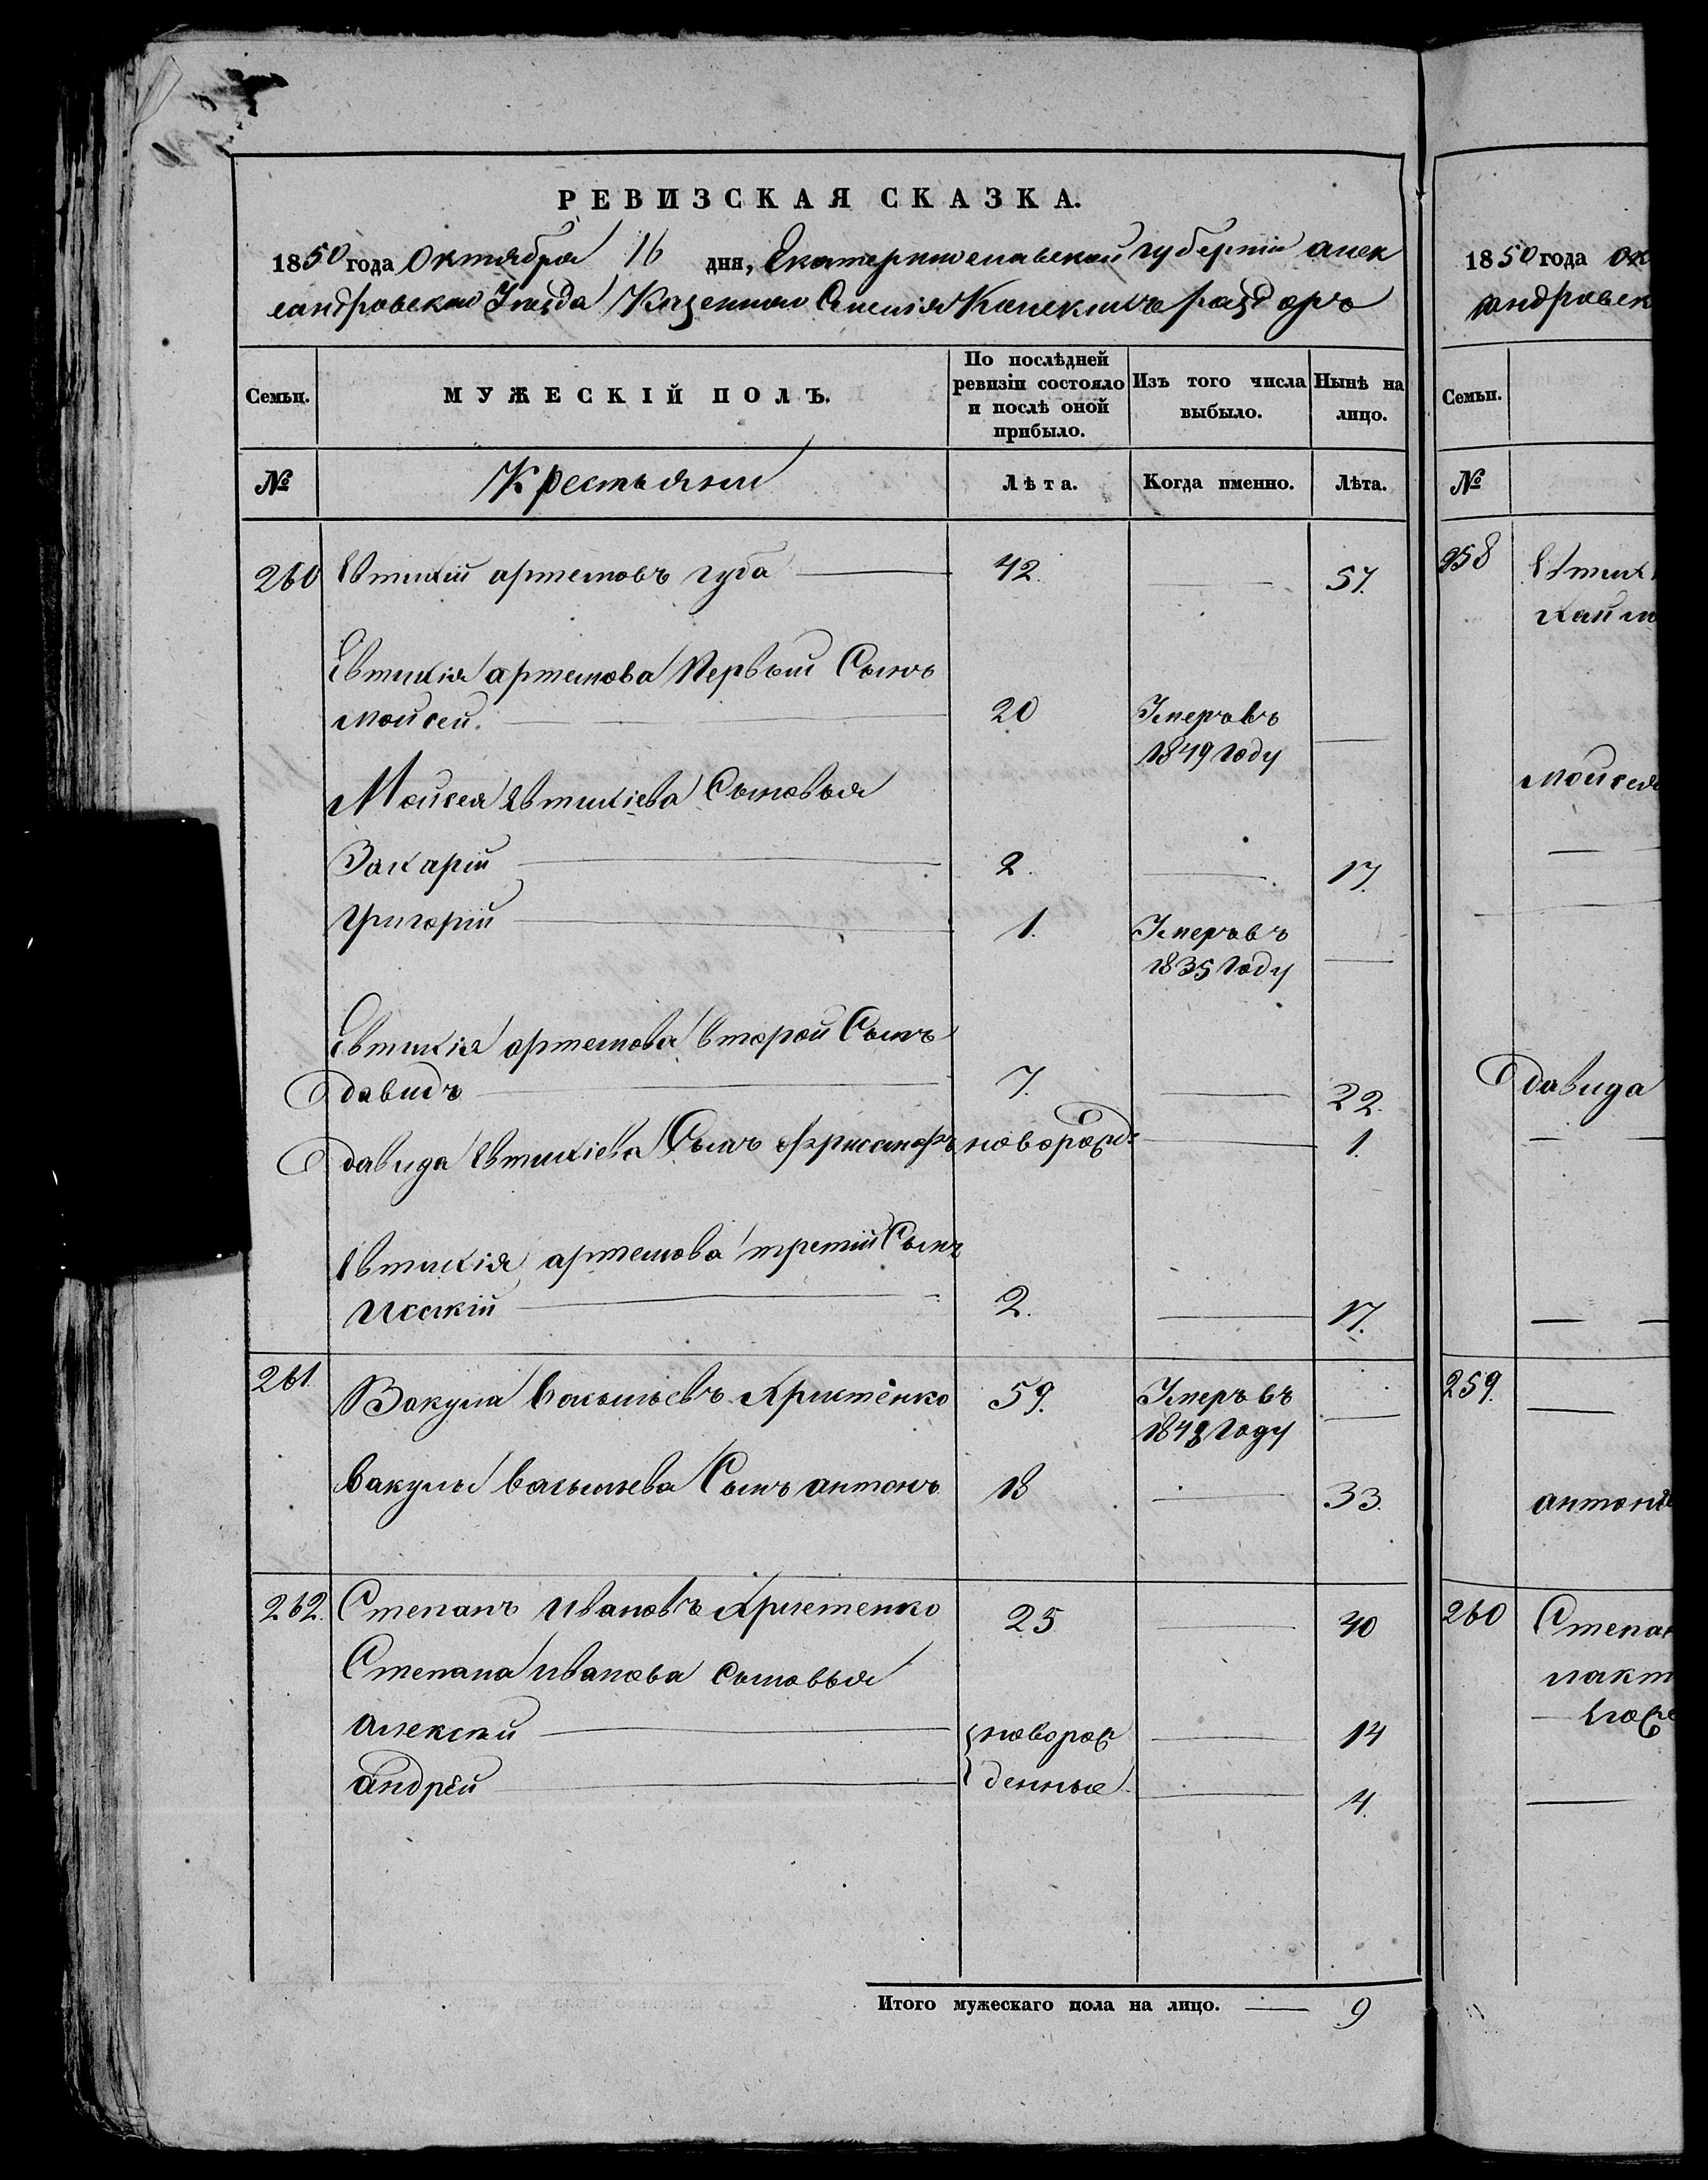 РЕВИЗСКАЯ СКАЗКА.
1850 года Октября 16 дня, Екатеринославской губерніи алек
сандровскаго Уезда Казенного Селенія Конскихъ раздоръ
Семьи.
МУЖЕСКІЙ ПОЛЪ.
По послѣдней ревизіи состояло и послѣ оной прибыло.
Изъ того числа выбыло.
Нынѣ на лицо.
№ Крестьяни Лѣта. Когда именно. Лѣта.
260 Евтихій артемовъ губа 42. 57.
Евтихія артемова Первый Сынъ
мойсей. 20 Умеръ въ
1849 году
Мойсея Евтихіева Сыновья
Захарій 2. 17.
Григорій 1. Умеръ въ
1835 году
Евтихія артемова второй Сынъ
давидъ 7. 22.
давида Евтихіева Сынъ новорожд. 1.
Евтихія артемова третій Сынъ
2. 17.
261 Вакула васильевъ Христенко 59. Умеръ въ
1848 году
вакулы васильева Сынъ антонъ 18 33.
262. Степанъ ивановъ Христенко 25 40
Степана иванова сыновья
алексѣй новорож 14
андрей денные 4.
Итого мужескаго пола на лицо. 9
1850 года ок
сандровск
Семьи.
№
258 Евтих
мойсея
давида
259.
антон
260 Степа